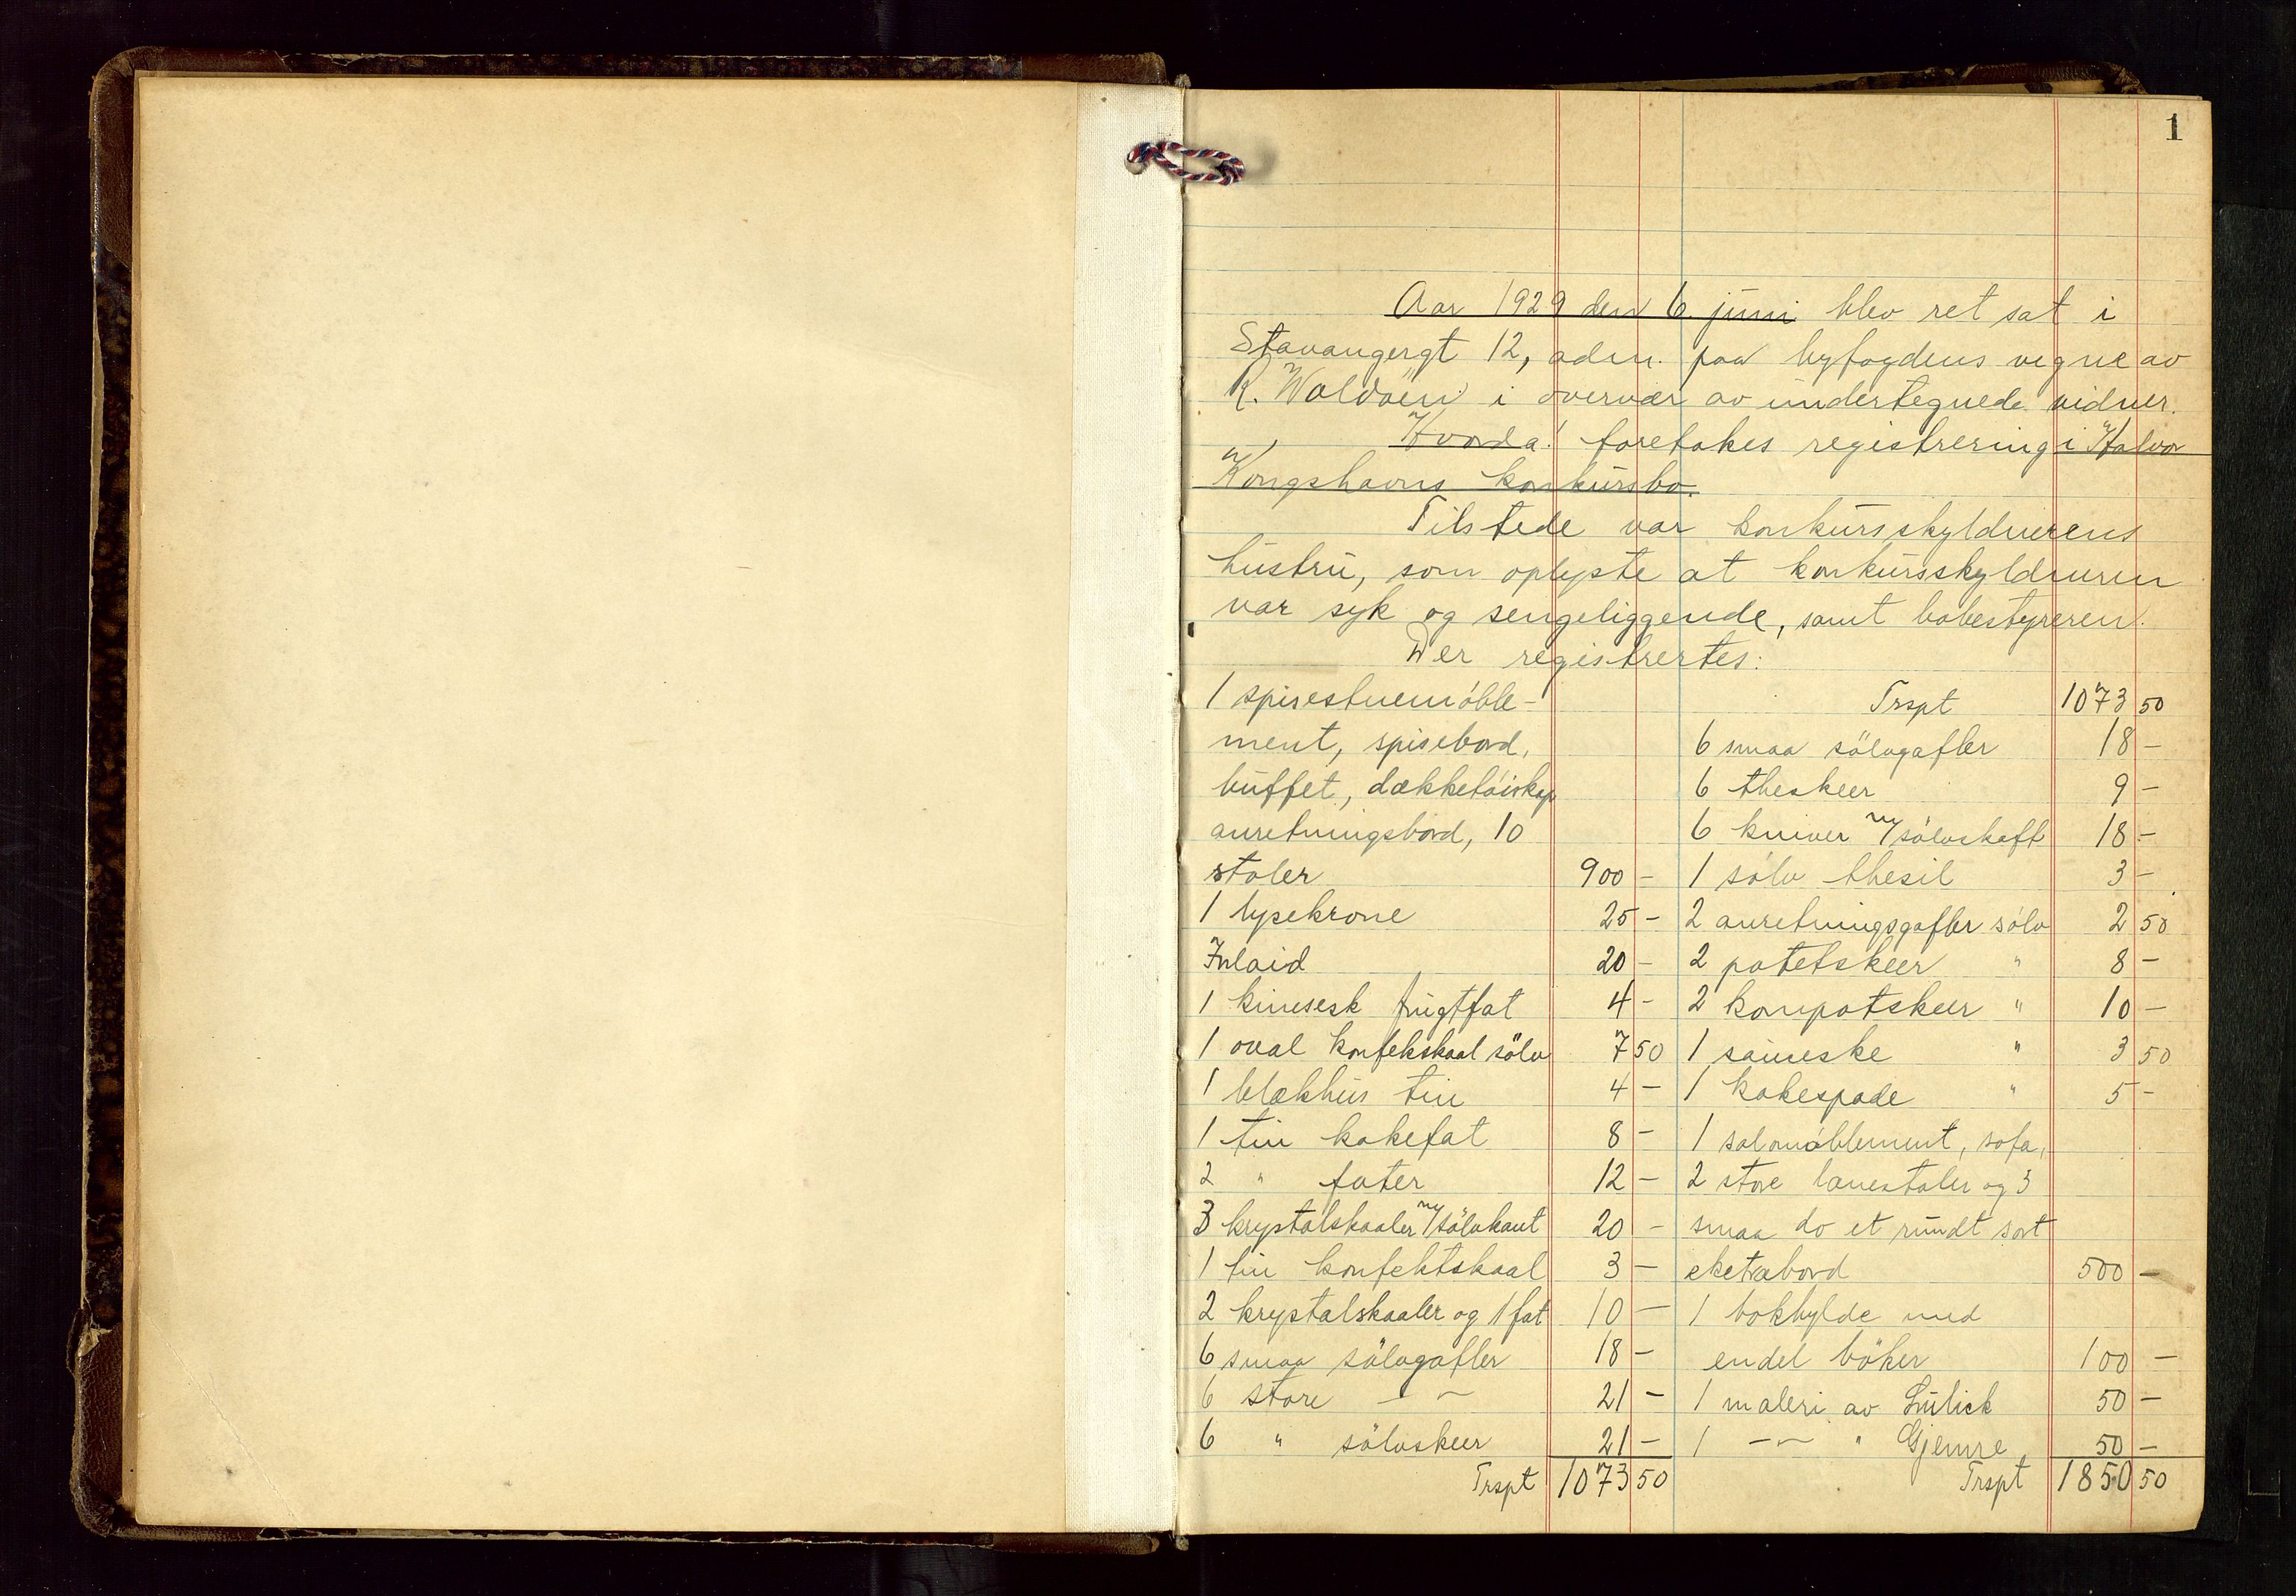 1
Aar 1929 den 6. juni blev ret sat i
Stavangergt 12, adm. paa byfogdens vegne av
R. Woldöen i overvær av undertegnede vidner.
Hvorda! foretokes registrering i Halvor
Kongshavns konkursbo.
Tilstede var konkursskyldnerens
hustru, som oplyste at konkursskyldneren
var syk og sengeliggende, samt bobestyreren.
Der registrertes:
1 spisestuemöble-
ment, spisebord,
buffet, dækketöiskap
anretningsbord, 10
stoler 900 -
1 lysekrone 25 -
Inlaid 20 -
1 kinesesk frugtfat 4 -
1 oval konfekskaal sölv 7 50
1 blækhus tin 4 -
1 tin kakefat 8 -
2 " fater 12 -
3 krystalskaaler m/sölvkant 20 -
1 tin konfektskaal 3 -
2 krystalskaaler og 1 fat 10 -
6 smaa sölvgafler 18 -
6 store - " - 21 -
6 " sölvskeer 21 -
Trspt 1073 50
Trspt 1073 50
6 smaa sölvgafler 18 -
6 theskeer 9 -
6 kniver m/sölvskaft 18 -
1 sölv thesil 3 -
2 anretningsgafler sölv 2 50
2 potetskeer " 8 -
2 kompotskeer " 10 -
1 sauseske " 3 50
1 kakespade " 5 -
1 salonmöblement, sofa,
2 store lænestoler og 3
smaa do et rundt sort
eketræbord 500 -
1 bokhylde med
endel böker 100 -
1 maleri av 50 -
1 - " - " Gjemre 50 -
Trspt 1850 50